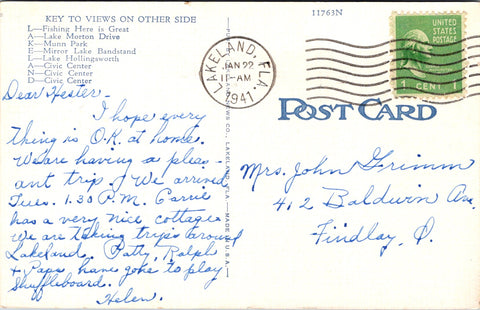 KEY TO VIEWS ON OTHER SIDE
L—Fishing Here is Great
A—Lake Morton Drive
K—Munn Park
E—Mirror Lake Bandstand
L—Lake Hollingsworth
A—Civic Center
N—Civic Center
D—Civic Center
Dear Hester:-
I hope every
thing is O.K. at home.
We are having a pleas-
ant trip. We arrived
Tues. 1.30 P.M. Carrie
has a very nice cottage
We are taking trips around
Lakeland. Patty, Ralph
+ Papa have gone to play
Shuffleboard.
Helen.
LAKELAND, FLA.
MADE IN U.S.A.
LAKELAND, FLA.
JAN 22
11-AM
1941
11763N
UNITED
STATES
POSTAGE
1 CENT 1
POST CARD
Mrs. John Grimm
412 Baldwin Av.
Findlay, O.